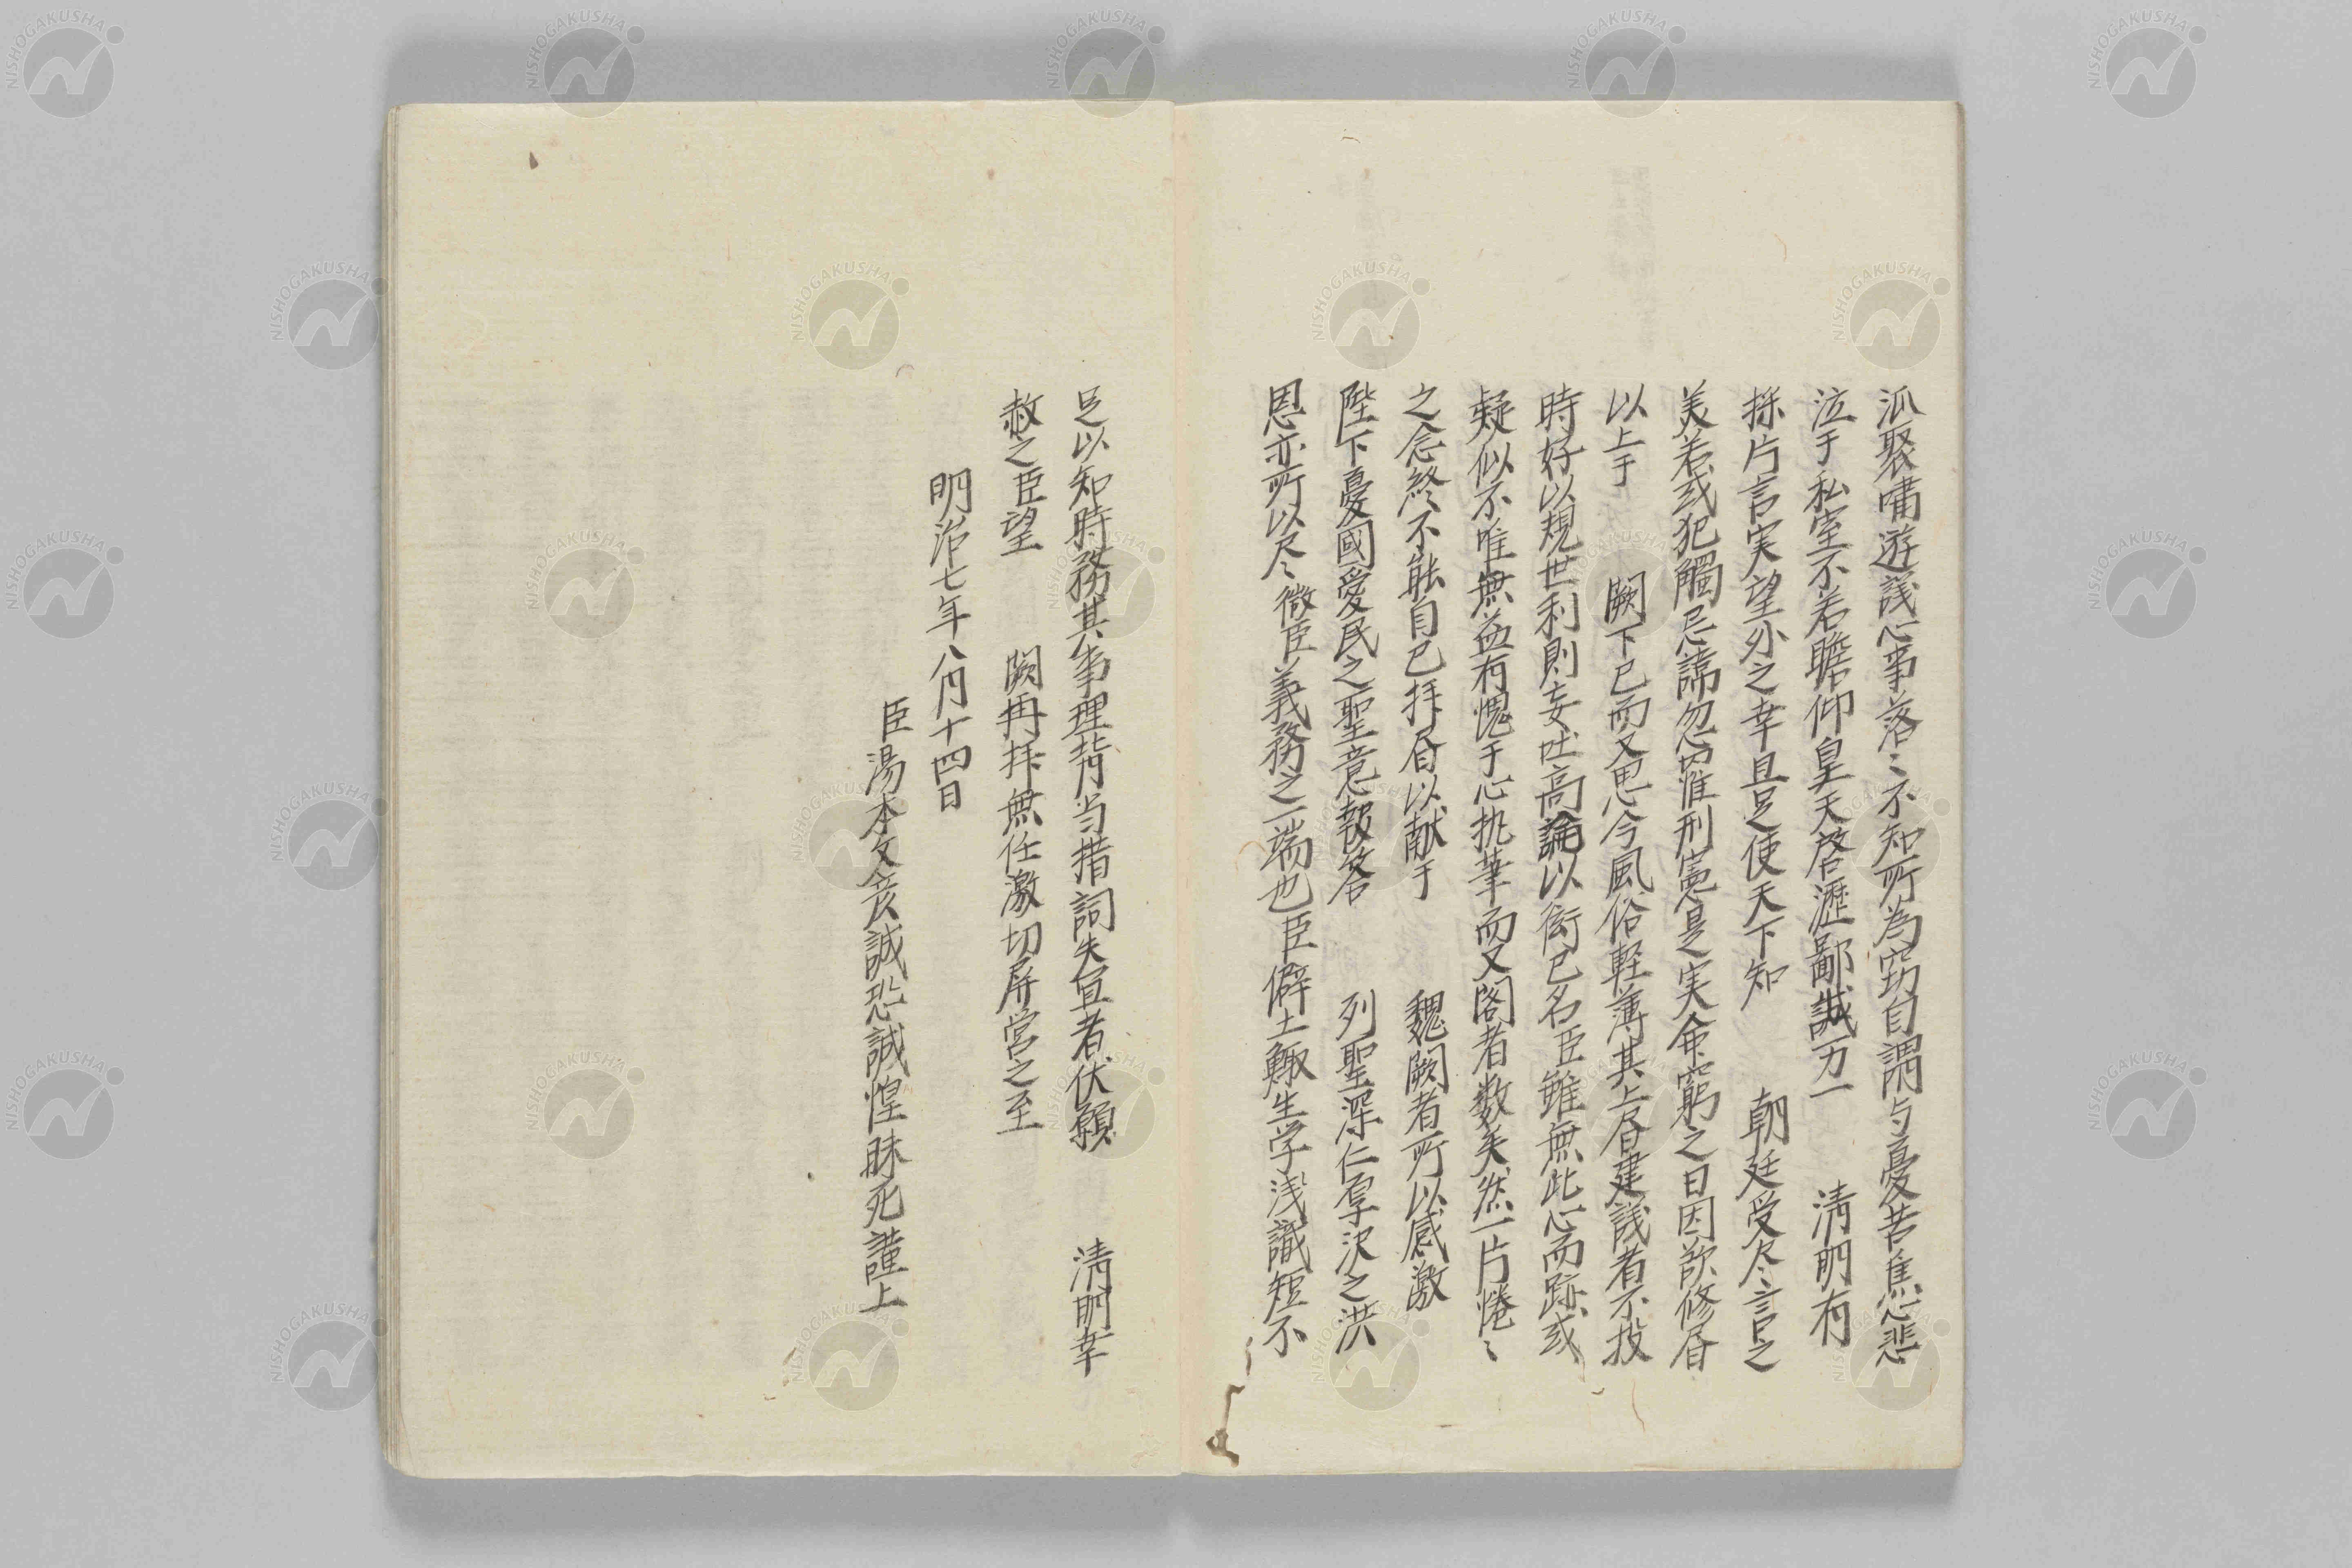 泒聚嘯遊議心事落〻不知所為窃自謂与憂苦焦心悲
泣于私室不若瞻仰皇天啓瀝鄙誠万一　清明有
採片言実望外之幸且足使天下知　朝廷受尽言之
美若或犯觸忌諱忽罹刑憲是実命窮之日因欲修書
以上于　闕下已而又思今風俗軽薄其上書建議者不投
時好以規世利則妄吐高論以衒己名臣雖無此心而跡或
疑似不唯無益有愧于心執筆而又閣者数矣然一片惓〻
之念終不能自已拝書以献于　魏闕者所以感激
陛下憂國愛民之聖意報答　列聖深仁厚沢之洪
恩亦所以尽微臣義務之一端也臣僻土鯫生学浅識短不
足以知時務其事理背当措詞失宜者伏願　清明幸
赦之臣望　闕再拝無任激切屏営之至
明治七年八月十四日
臣湯本文彦誠恐誠惶昧死謹上
NISHOGAKUSHA